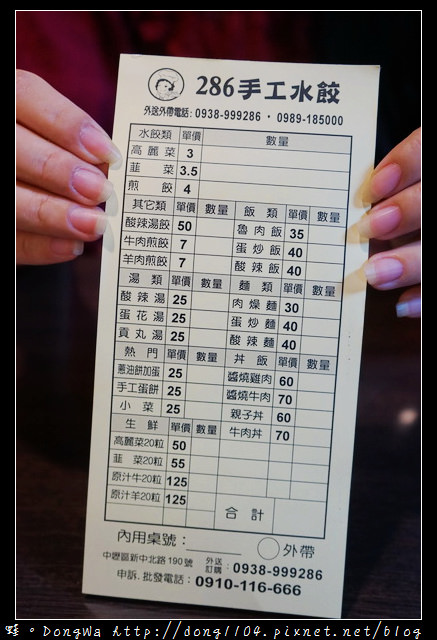 286手工水餃
外送外帶電話：0938-999286・0989-185000
水餃類 單價 數量
高麗菜 3
韮菜 3.5
煎餃 4
其它類 單價 數量 飯類 單價 數量
酸辣湯餃 50 魯肉飯 35
牛肉煎餃 7 蛋炒飯 40
羊肉煎餃 7 酸辣飯 40
湯類 單價 數量 麵類 單價 數量
酸辣湯 25 肉燥麵 30
蛋花湯 25 蛋炒麵 40
貢丸湯 25 酸辣麵 40
熱門 單價 數量 丼飯 單價 數量
蔥油餅加蛋 25 醬燒雞肉 60
手工蛋餅 25 醬燒牛肉 70
小菜 25 親子丼 60
生鮮 單價 數量 牛肉丼 70
高麗菜20粒 50
韮菜20粒 55
原汁牛20粒 125
原汁羊20粒 125 合計
內用桌號： 外帶
中壢區新中北路190號 外送訂購：0938-999286
申訴.批發電話：0910-116-666
。DongWa Http://dong1104.pixnet.net/blog